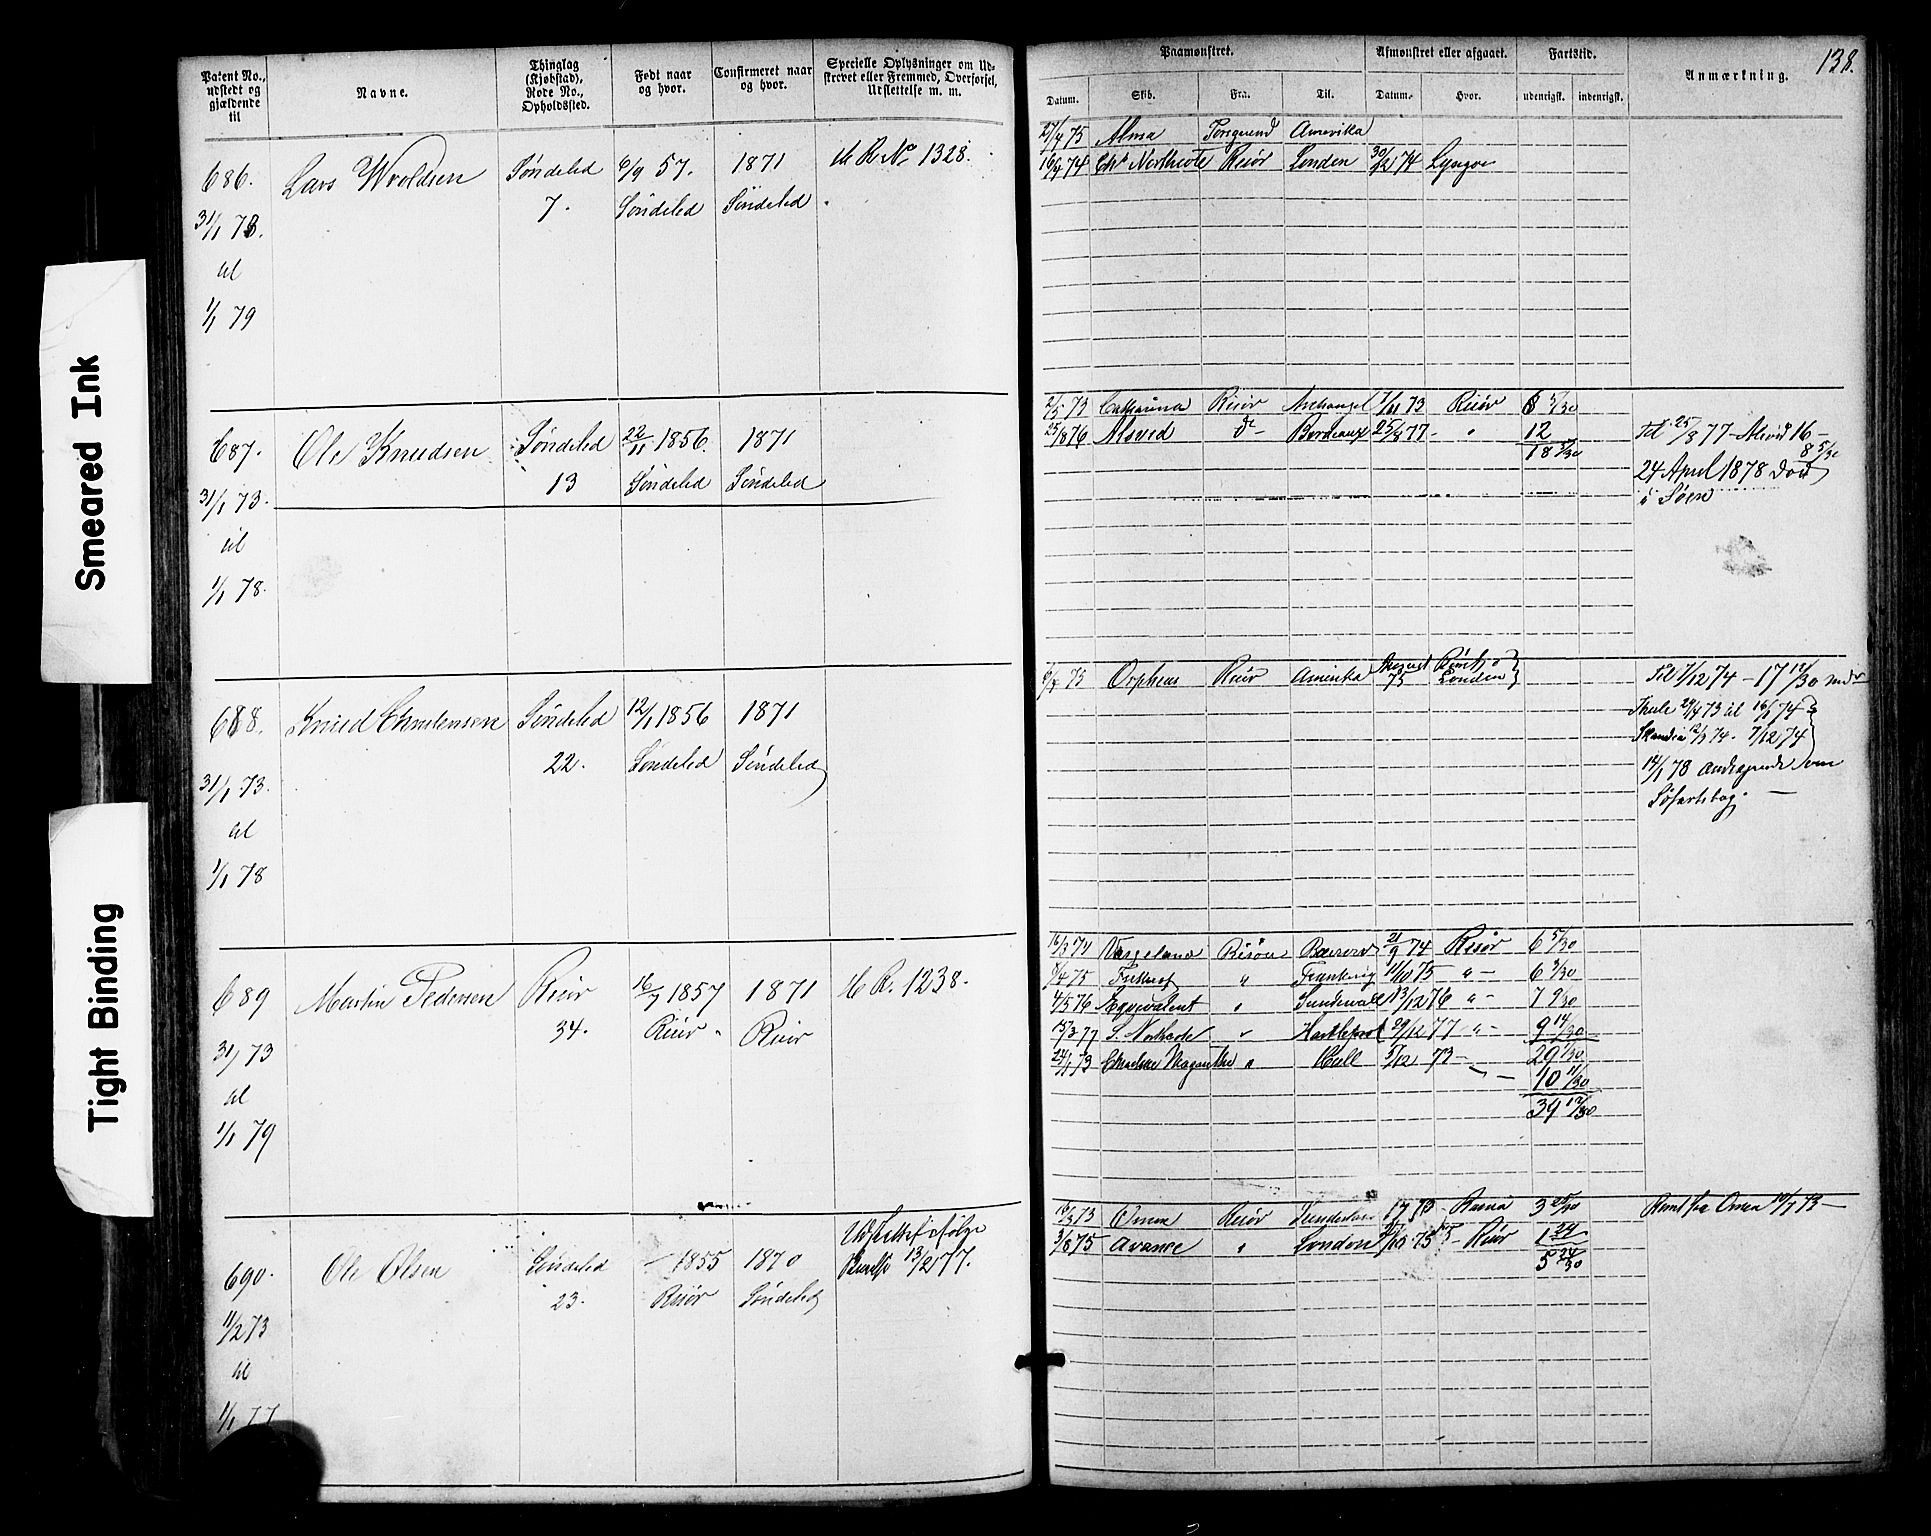 138.
Patent No., udstedt og gjældende til
Navne.
Thinglag (Kjøbstad), Rode No., Opholdssted.
Født naar og hvor.
Confirmeret naar og hvor.
Specielle Oplysninger om Udskrevet eller Fremmed, Overførsel, Udslettelse m. m.
Paamønstret.
Afmønstret eller afgaaet.
Fartstid.
Anmærkning.
Datum. Skib. Fra. Til. Datum. Hvor. udenrigsk. indenrigsk.
686. Lars Wroldsen Søndeled 6/9 57. 1871 H R No 1328.
7. Søndeled Søndeled
31/1 73.
til
1/1 79
27/7 75 Alma Amerika
16/4 74 Northcote Risør London 30/12 74 Lyngør
687. Ole Knudsen Søndeled 22/11 1856. 1871
13 Søndeled Søndeled
31/1 73.
til
1/1 78.
2/5 73 Catharina Risør Archangel 7/11 73 Risør 6 5/30
25/8 76 Alsvid do Bordeaux 25/8 77 " 12
18 5/30
Til 25/8 77 Alsvid 16 -
8 5/30
24 April 1878 Død
i Søen
688. Knud Christensen Søndeled 12/1 1856 1871
22. Søndeled Søndeled
31/1 73.
til
1/1 78
6/7 75 Orpheus Risør Amerika August 75 London
Til 7/12 74 - 17 12/30 mdr
Thule 29/4 73 til 16/1 74
Skandia 12/3 74 - 7/12 74
14/1 78 som
Søfartsbog.
689 Martin Pedersen Risør 16/7 1857 1871 H R. 1238.
34. Risør Risør
31/1 73
til
1/1 79
16/3 74 Risør 21/9 74 Risør 6 5/30
7/4 75 Frithiof " 11/10 75 " 6 3/30
4/5 76 Eqvivalent " Sundsvall 13/12 76 " 7 9/30
15/3 77 S. Northcote " Hartlepool 29/12 77 " 9 14/30
24/1 73 Charlotte Margarethe " Hull 5/12 73 29 1/30
10 11/30
39 12/30
690. Ole Olsen Søndeled - 1855 1870 Udslettet ifølge
23. Risør Søndeled 13/2 77.
11/2 73
til
1/1 77
16/3 73 Risør Sunderland 3 25/30
3/8 75 Avance " London Risør 1 24
5 24/30
Rømt fra 10/7 73
Smeared Ink
Tight Binding